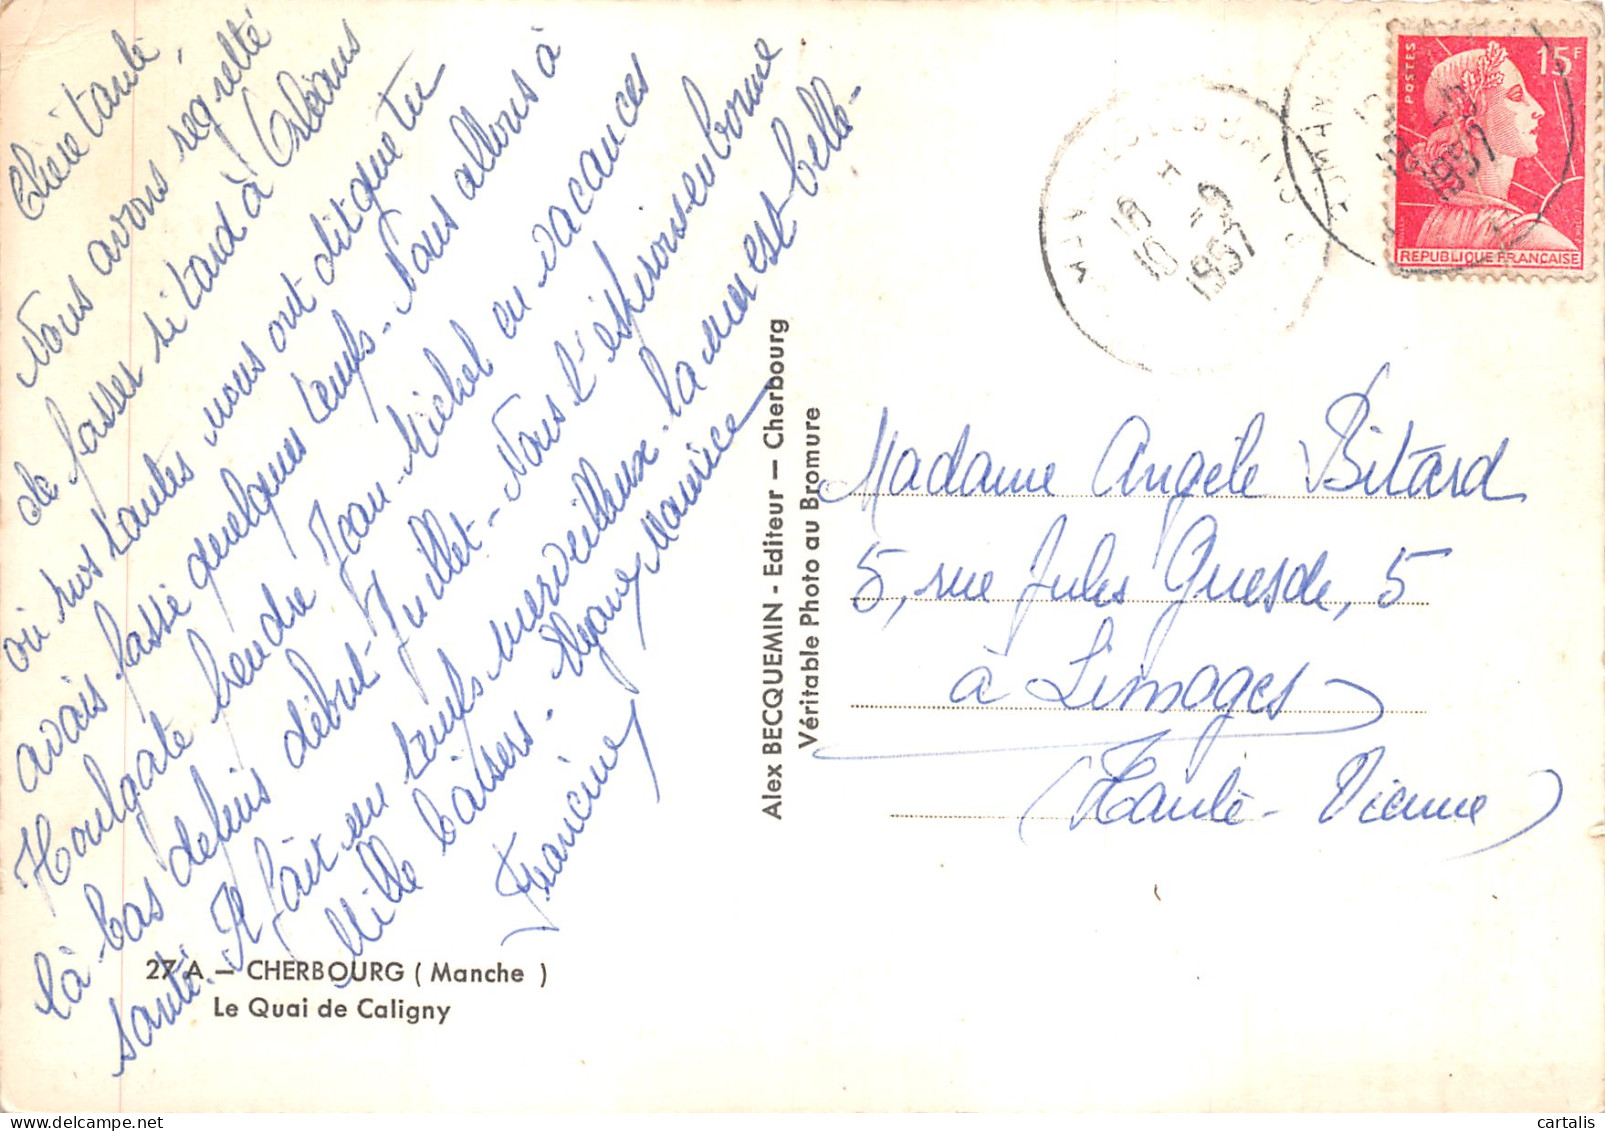 Chère tante,
Nous avons regretté
de passer si tard à Orléans
où nos tantes nous ont dit que tu
avais passé quelques temps - Nous allons à
Houlgate prendre Jean-Michel en vacances
là bas depuis début Juillet - Nous l'espérons en bonne
santé. Il fait un temps merveilleux. la mer est belle -
Mille baisers. Maurice
Francine
27 A. — CHERBOURG ( Manche )
Le Quai de Caligny
Alex BECQUEMIN - Editeur — Cherbourg
Véritable Photo au Bromure
18 H
10 - 9
1957
1957
POSTES
15F
REPUBLIQUE FRANCAISE
Madame Angèle Bitard
5, rue Jules Guesde, 5
à Limoges
(Haute-Vienne)
cartalis